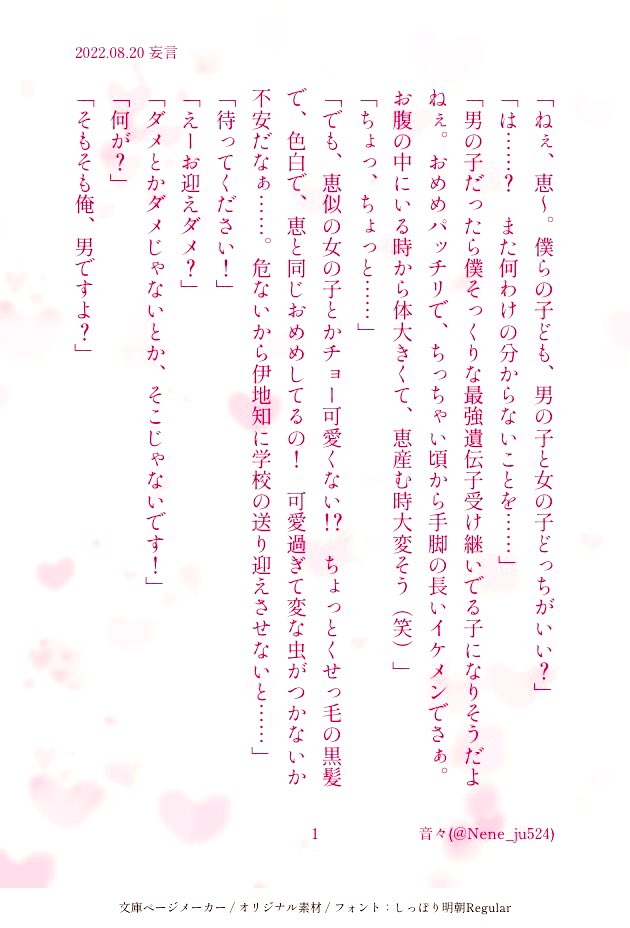 2022.08.20 妄言
「ねぇ、恵〜。僕らの子ども、男の子と女の子どっちがいい？」
「は……？　また何わけの分からないことを……」
「男の子だったら僕そっくりな最強遺伝子受け継いでる子になりそうだよ
ねぇ。おめめパッチリで、ちっちゃい頃から手脚の長いイケメンでさぁ。
お腹の中にいる時から体大きくて、恵産む時大変そう（笑）」
「ちょっ、ちょっと……」
「でも、恵似の女の子とかチョー可愛くない!?　ちょっとくせっ毛の黒髪
で、色白で、恵と同じおめめしてるの！　可愛過ぎて変な虫がつかないか
不安だなぁ……。危ないから伊地知に学校の送り迎えさせないと……」
「待ってください！」
「えーお迎えダメ？」
「ダメとかダメじゃないとか、そこじゃないです！」
「何が？」
「そもそも俺、男ですよ？」
1
音々(@Nene_ju524)
文庫ページメーカー / オリジナル素材 / フォント：しっぽり明朝Regular